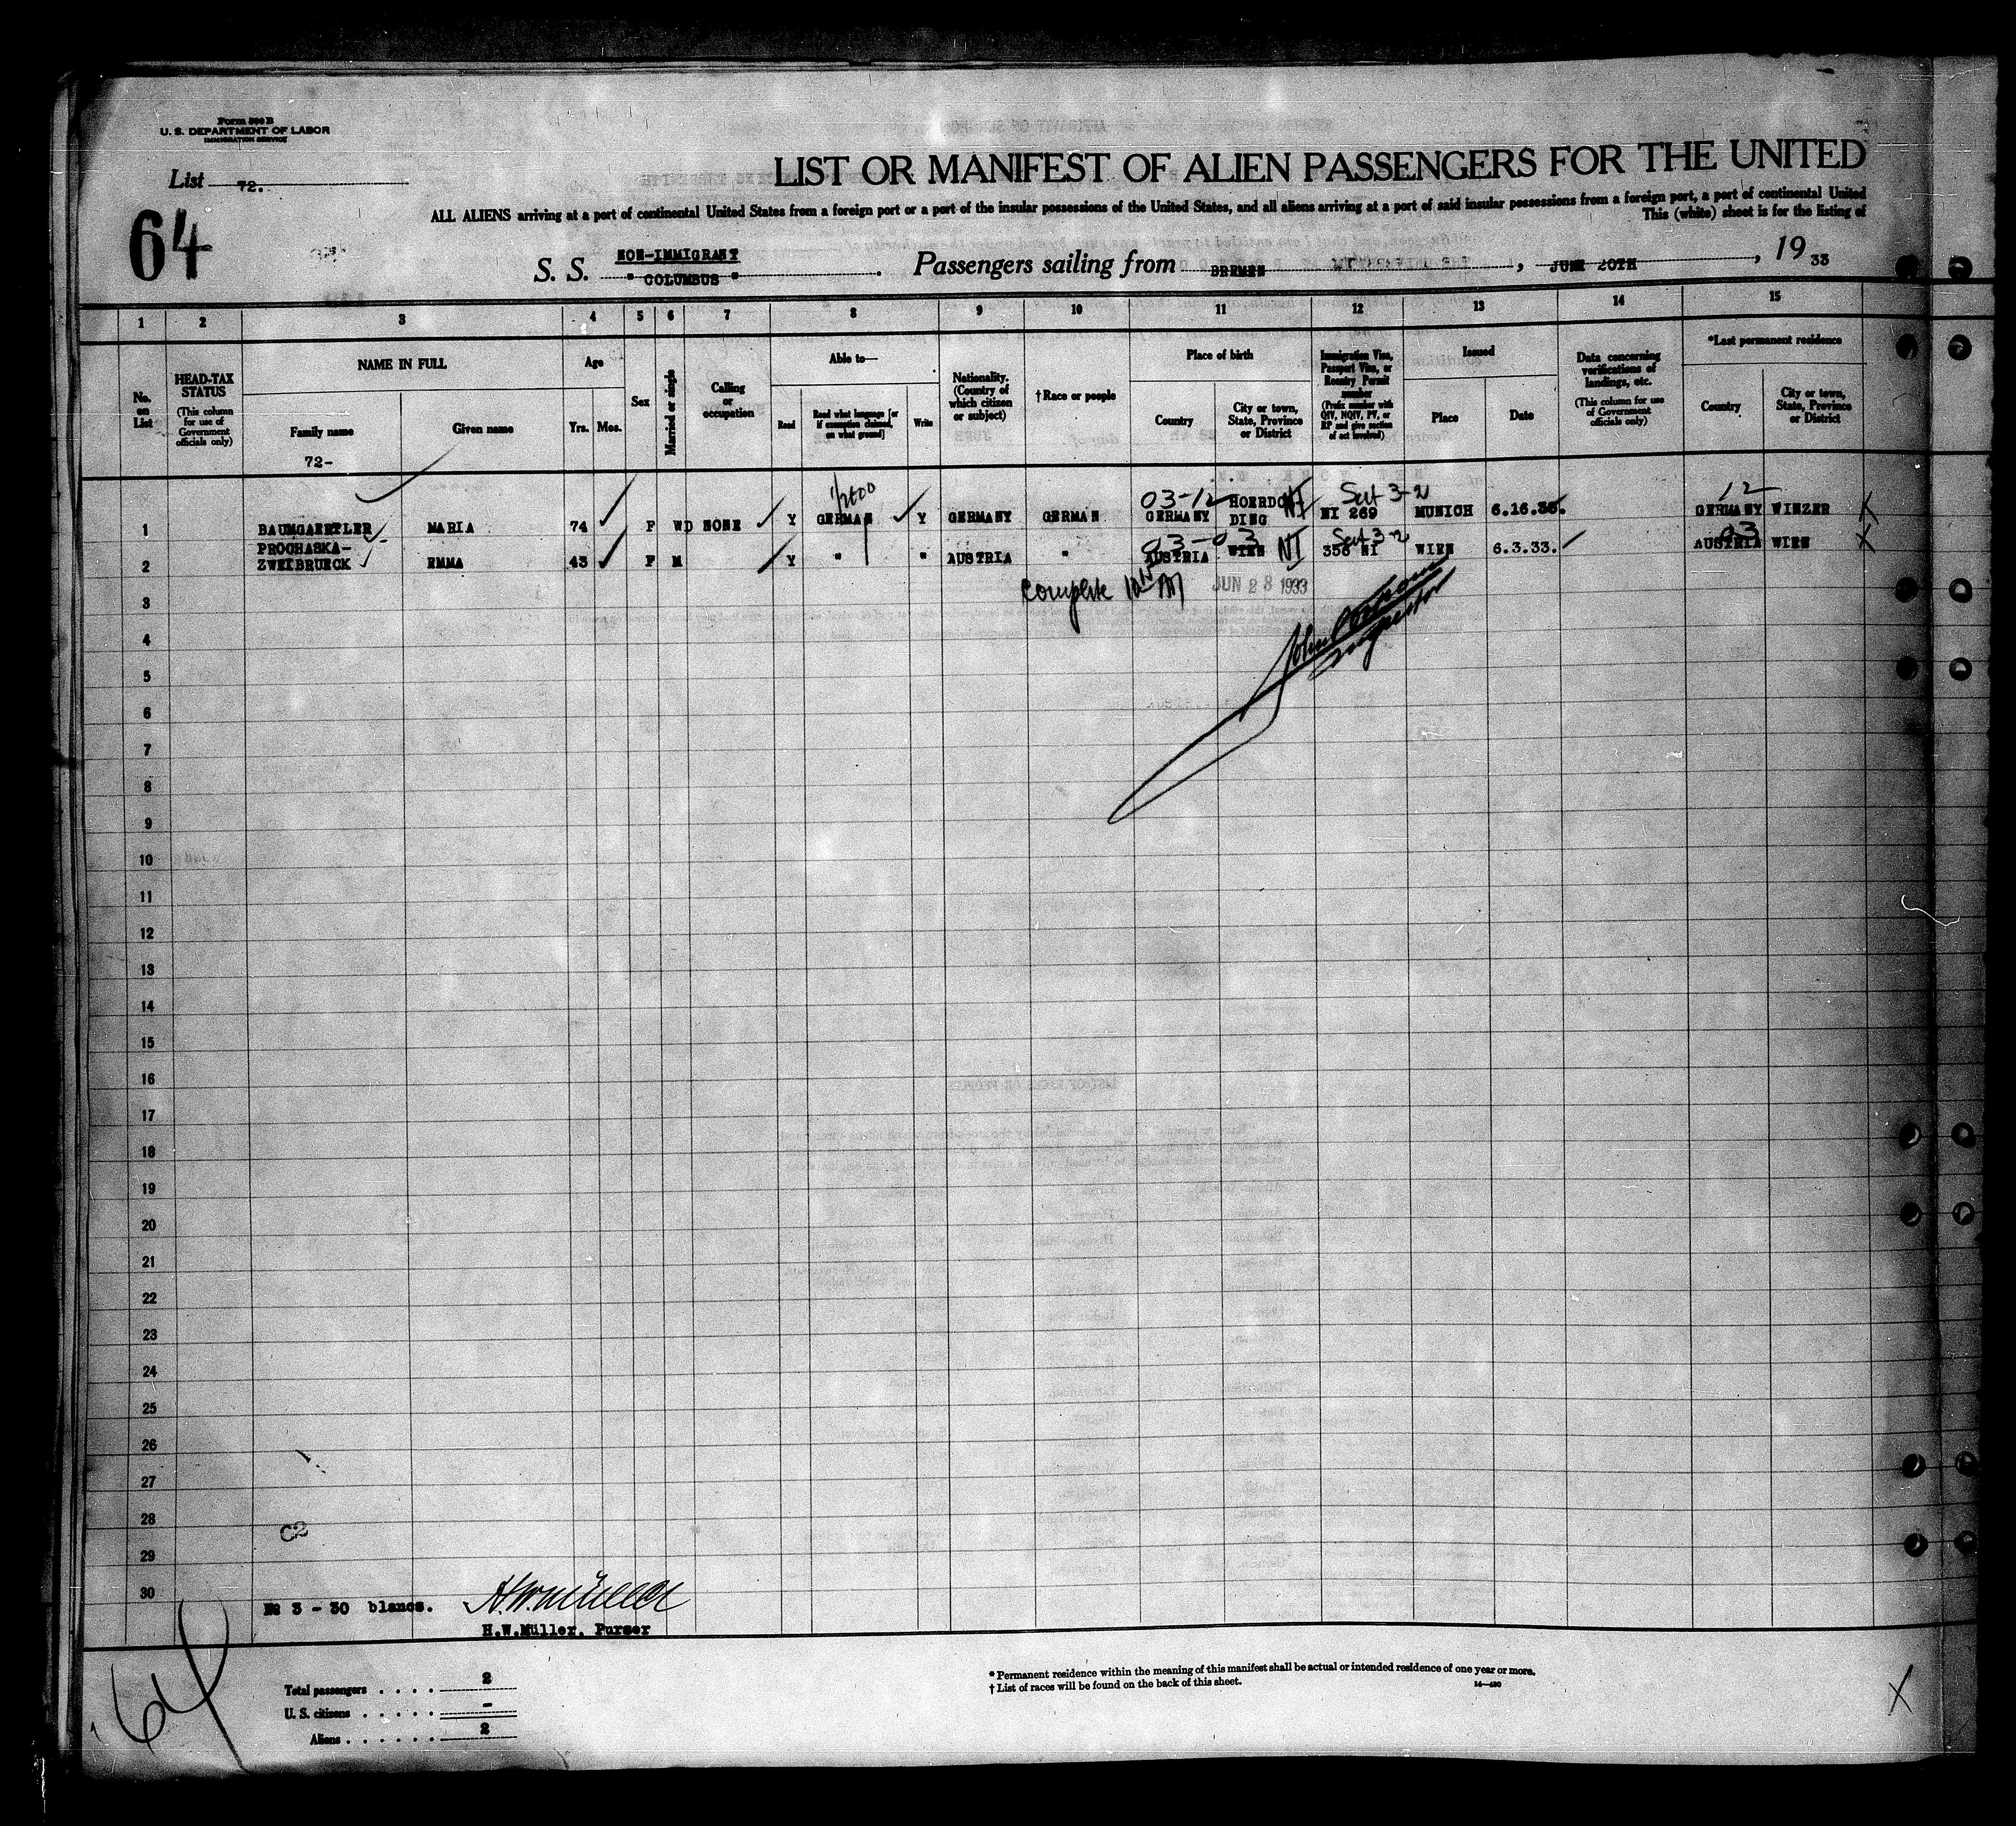 Form 500 B
U. S. DEPARTMENT OF LABOR
IMMIGRATION SERVICE
List 72.
64
LIST OR MANIFEST OF ALIEN PASSENGERS FOR THE UNITED
ALL ALIENS arriving at a port of continental United States from a foreign port or a port of the insular possessions of the United States, and all aliens arriving at a port of said insular possessions from a foreign port, a port of continental United
This (white) sheet is for the listing of
NON-IMMIGRANT
S. S. " COLUMBUS ". Passengers sailing from BREMEN, JUNE 20TH, 1933
1 2 3 4 5 6 7 8 9 10 11 12 13 14 15
No. on List
HEAD-TAX STATUS (This column for use of Government officials only)
NAME IN FULL
Family name
Given name
72-
Age
Yrs. Mos.
Sex
Married or single
Calling or occupation
Able to—
Read
Read what language [or if exemption claimed, on what ground]
Write
Nationality. (Country of which citizen or subject)
† Race or people
Place of birth
Country
City or town, State, Province or District
Immigration Visa, Passport Visa, or Reentry Permit number (Prefix number with QIV, NQIV, PV, or RP and give section of act involved)
Issued
Place
Date
Data concerning verifications of landings, etc. (This column for use of Government officials only)
*Last permanent residence
Country
City or town, State, Province or District
03-12 NI 12
1 BAUMGAERTLER MARIA 74 F WD NONE Y GERMAN Y GERMANY GERMAN GERMANY DING NI 269 MUNICH 6.16.33. GERMANY WINZER X
03-03 NI 03
2 PROCHASKA-
ZWEIBRUECK EMMA 43 F M Y " " AUSTRIA " AUSTRIA WIEN 356 NI WIEN 6.3.33. AUSTRIA WIEN X
Complete JUN 28 1933
John
Inspector
3
4
5
6
7
8
9
10
11
12
13
14
15
16
17
18
19
20
21
22
23
24
25
26
27
28
C2
29
30
No 3 - 30 blancs.
H.W.Müller
H.W.Müller, Purser
64
Total passengers . . . . 2
U. S. citizens . . . . . -
Aliens . . . . . . 2
* Permanent residence within the meaning of this manifest shall be actual or intended residence of one year or more.
† List of races will be found on the back of this sheet.
14—430
X